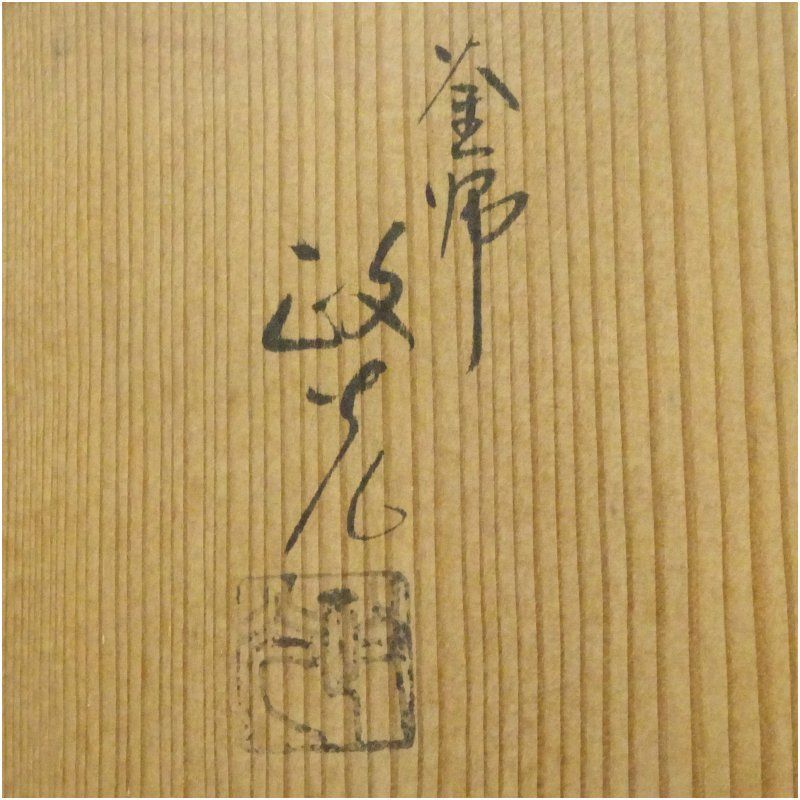 釜師
政光